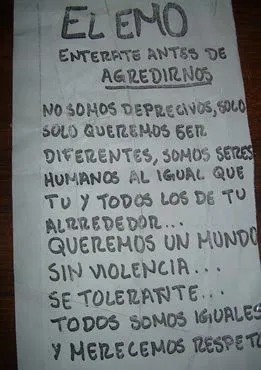 EL EMO
ENTERATE ANTES DE
AGREDIRNOS
NO SOMOS DEPRECIVOS, SOLO
SOLO QUEREMOS SER
DIFERENTES, SOMOS SERES
HUMANOS AL IGUAL QUE
TU Y TODOS LOS DE TU
ALRREDEDOR...
QUEREMOS UN MUNDO
SIN VIOLENCIA...
SE TOLERANTE...
TODOS SOMOS IGUALES
Y MERECEMOS RESPETO